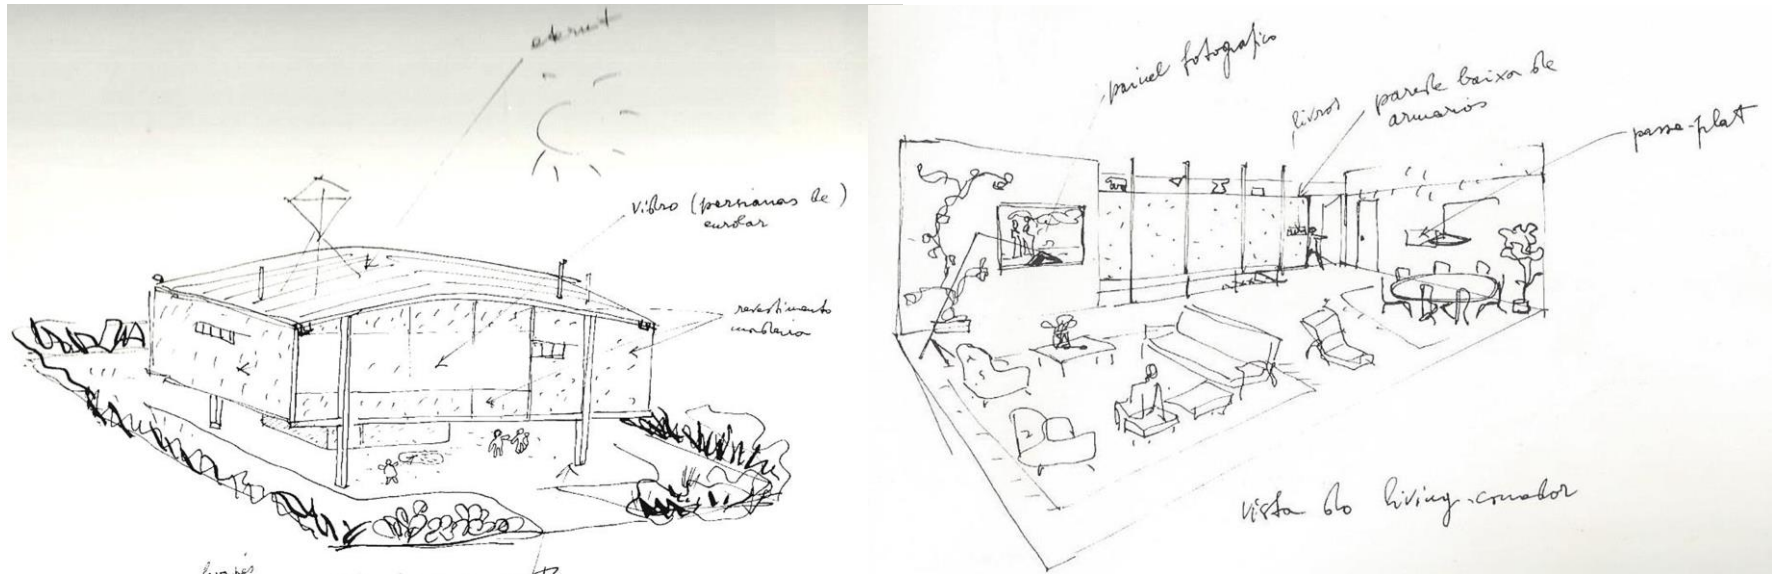 eternit
vidro (persianas de)
enrolar
revestimento
madeira
painel fotografico
livros
parede baixa de
armarios
passe-plat
vista do living-comedor